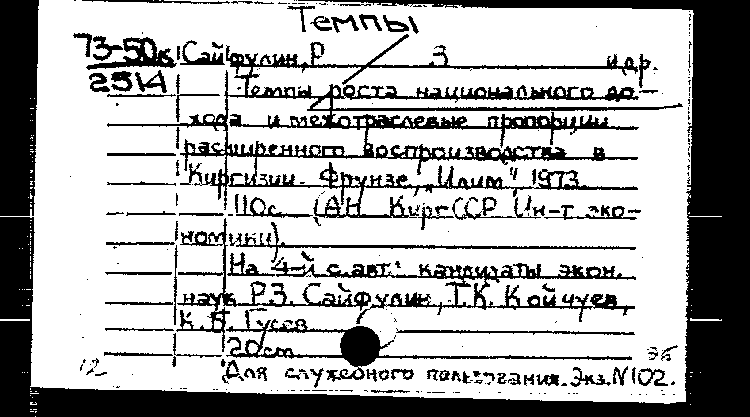 Темпы
73-50к Сайфулин, Р З и др.
2514 Темпы роста национального до-
хода и межотраслевые пропорции
расширенного воспроизводства в
Киргизии. Фрунзе, "Илим" 1973.
110с. (АН КиргССР Ин-т эко-
номики).
На 4-й с. авт.: кандидаты экон.
наук Р.З. Сайфулин, Т.К. Койчуев,
К.Б. Гусев
20см
Для служебного пользования. Экз. N102.
12 ЭБ